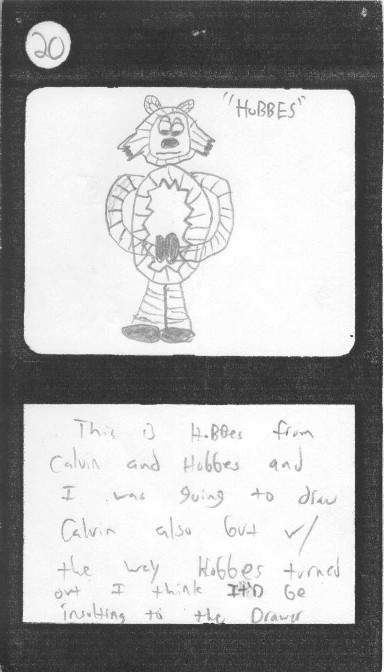 20
"HOBBES"
This is HoBBes from
Calvin and Hobbes and
I was going to draw
Calvin also but w/
the way Hobbes turned
out I think It'D Be
insulting to the Drawer